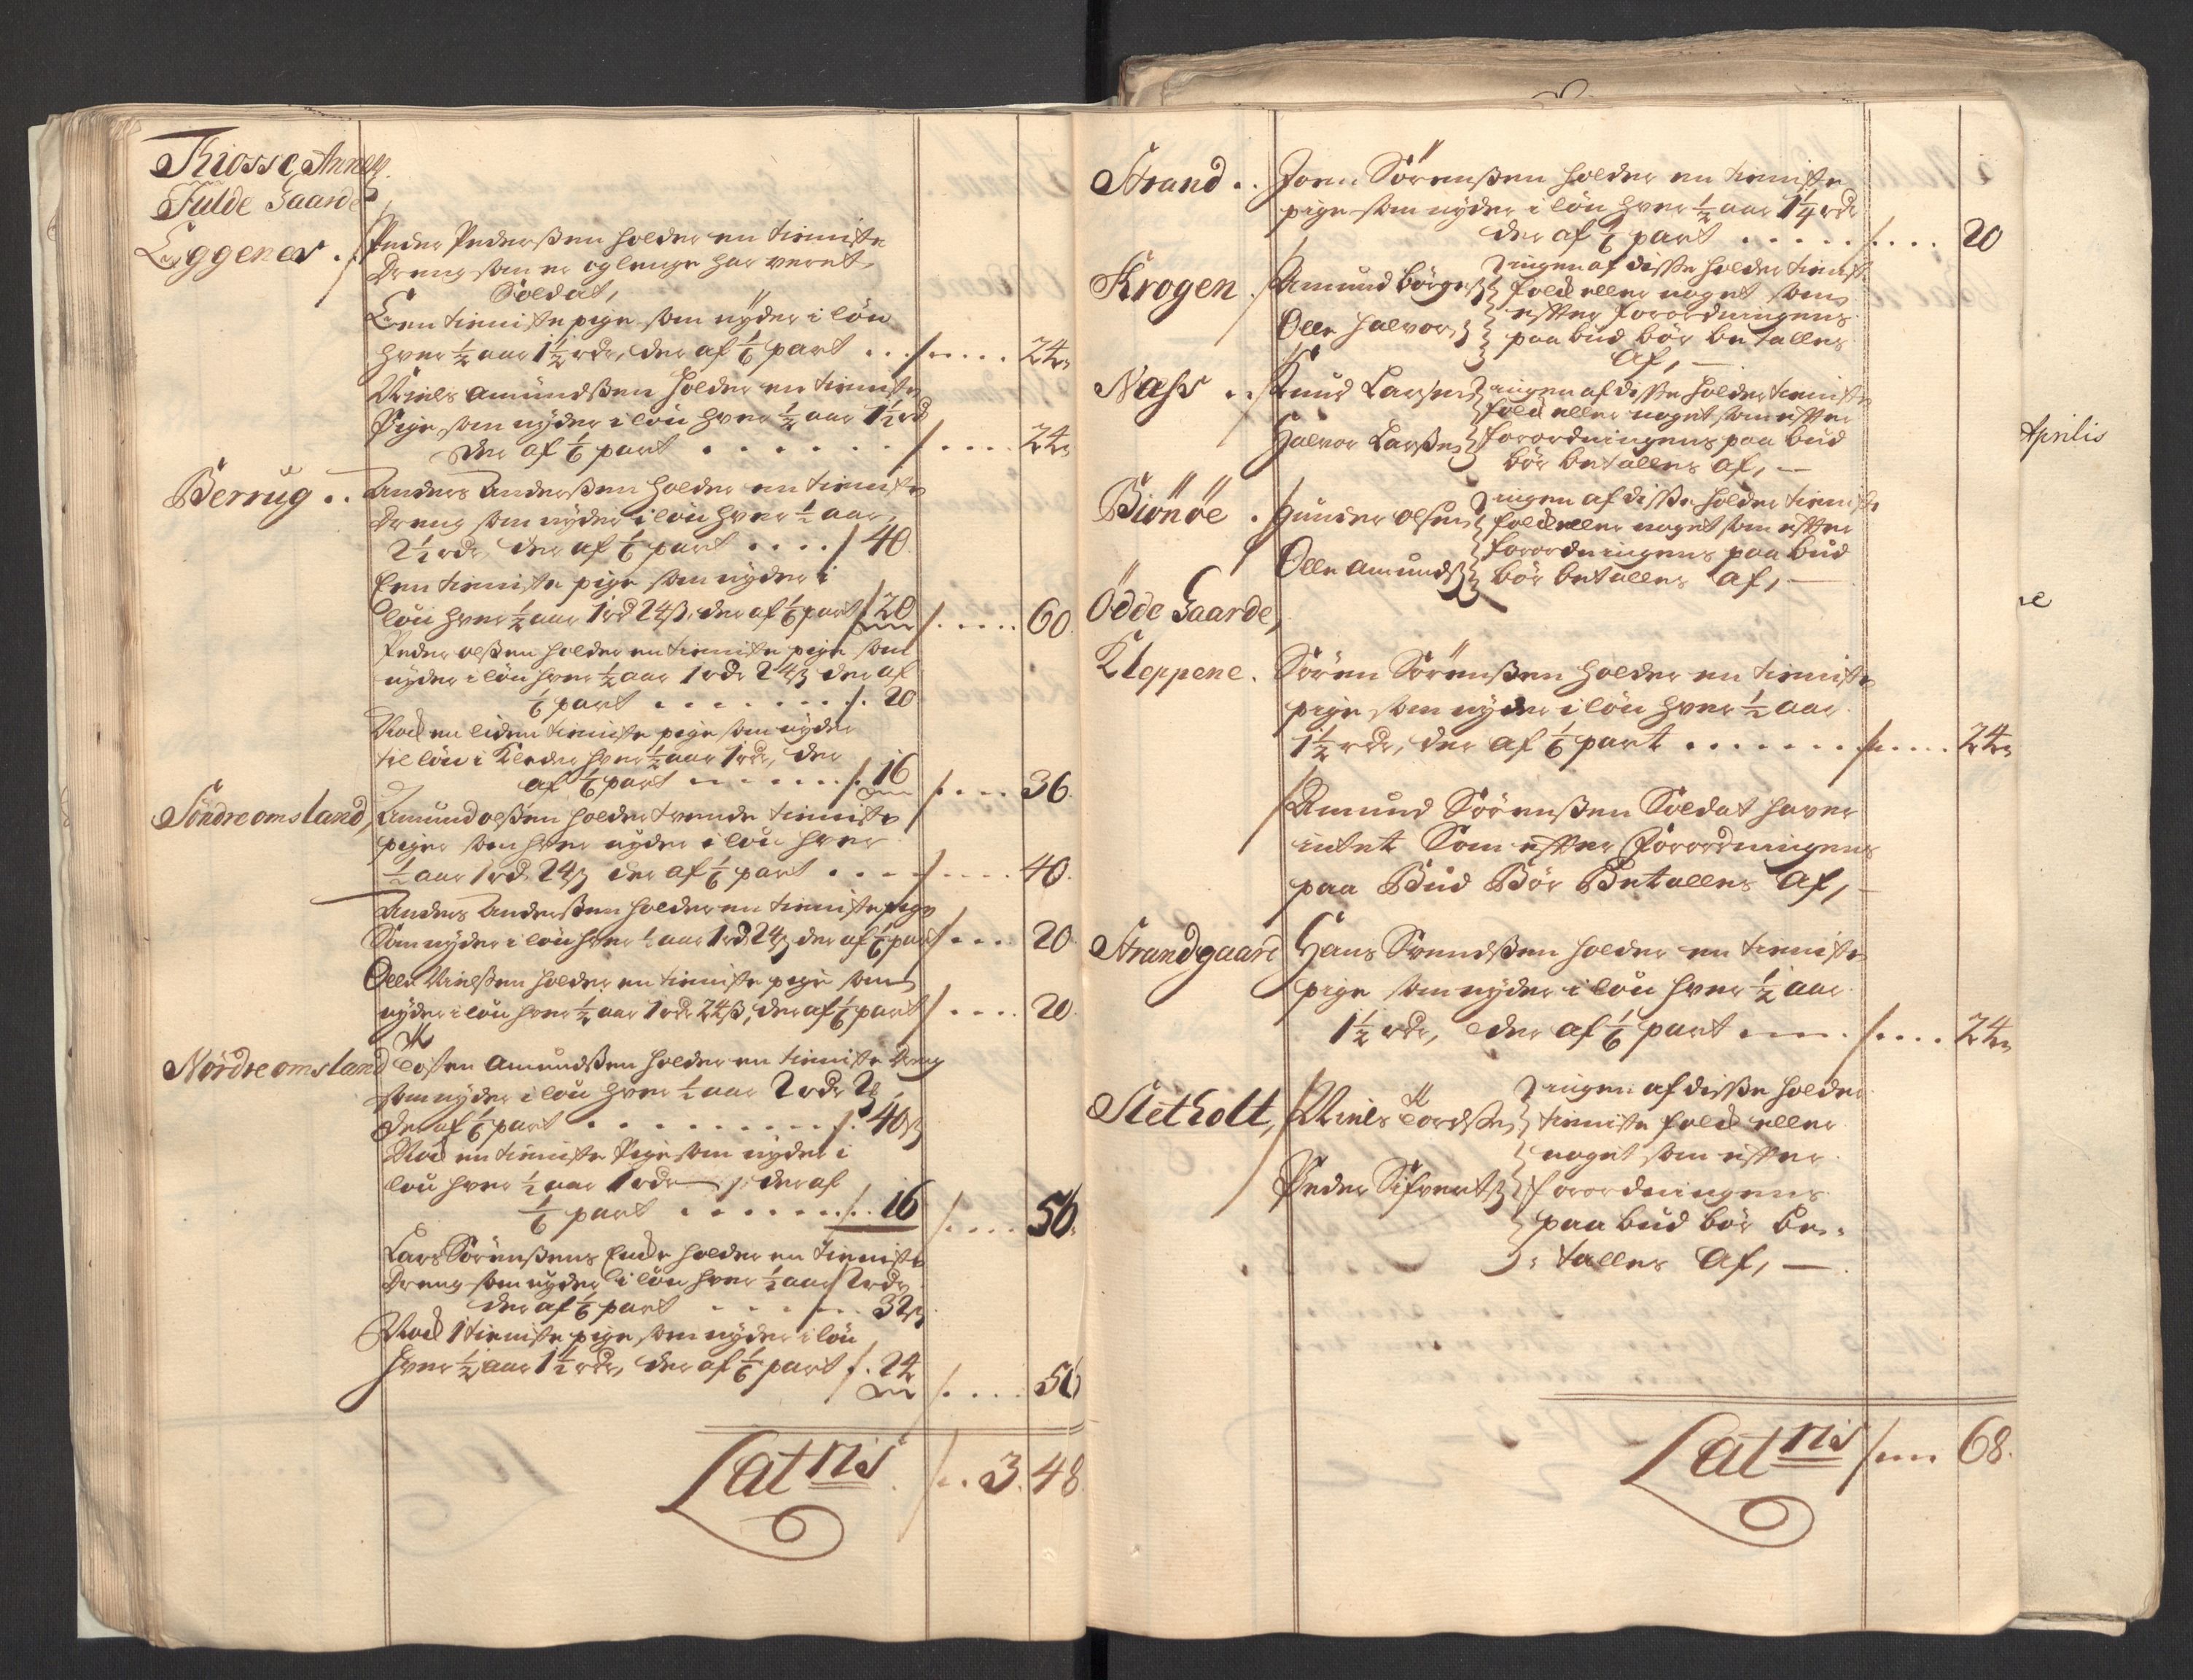 Kiosse Annex
Fulde Gaarde,
Eggenes . Peder Pederßen holder en tieniste
Dreng som er og lenge har veret
Soldat,
Een tieniste pige som nÿder i lön
hver ½ aar 1½ rdr, der af 1/6 part . . . 24
Niels Amundßen holder en tieniste
Pige som nÿder i lön hver ½ aar 1½ rd
der af 1/6 part . . . . . . 24
Berrug . . Anders Anderßen holder en tieniste
Dreng som nÿder i lön hver ½ aar
2½ rdr, der af 1/6 part . . . . 40
Een tieniste pige som nÿder i
lön hver ½ aar 1 rd 24 ß, der af 1/6 part 20 . . . . 60
Peder olßen holder en tieniste pige som
nÿder i lön hver ½ aar 1 rdr 24 ß der af
1/6 part . . . . . . . 20
Nock en liden tieniste pige som nÿder
til lön i Kleder hver ½ aar 1 rdr, der
af 1/6 part . . . . . 16 . . . 36
Söndre omsland, Amund olßen holder tvende tieniste
piger som hver nÿder i lön hver
½ aar 1 rd 24 ß der af 1/6 part . . . . . . 40.
Anders Anderßen holder en tieniste pige
Som nÿder i lön hver ½ aar 1 rd 24 ß der af 1/6 part . . . 20
Olle Nielßen holder en tieniste pige som
nÿder i lön hver ½ aar 1 rdr 24 ß, der af 1/6 part . . . . 20
Nordre omsland Tosten Amundßen holder en tieniste Dreng
som nÿder i lön hver ½ aar 2 rdr 2
der af 1/6 part . . . . . . . . . 40 ß
Nock en tieniste Pige som nÿder i
lön hver ½ aar 1 rdr, der af
1/6 part . . . . . . . . 16 . . . . 56.
Lars Sörenßens Encke holder en tieniste
Dreng som nÿder i lön hver ½ aar 2 rdr
der af 1/6 part . . . . . 32 ß
Nock 1 tieniste pige som nÿder i lön
hver ½ aar 1½ rdr, der af 1/6 part . 24 . . . . 56
Lat ris . . 3. 48
Strand . . Joen Sörenßen holder en tieniste
pige som nÿder i lön hver ½ aar 1¼ rdr
der af 1/6 part . . . . . . . . . 20
Krogen . Amund Börgeß ingen af disse holder tieniste
folck eller noget som
Olle Halvorß effter forordningens
paa bud bör betalles
af, —
Næss . . Knud Larsen ingen af disse holder tieniste
folck eller noget som effter
Halvor Larßen forordningens paa bud
bör betalles af, —
Biönöe . Gunder olsen ingen af disse holder tieniste
folck eller noget som effter
forordningens paa bud
Olle Amundß bör betalles af, —
Ödde Gaarde,
Kleppene . Sören Sörenßen holder en tieniste
pige som nÿder i lön hver ½ aar
1½ rdr, der af 1/6 part . . . . . . . . . . . 24
Amund Sörenßen Soldat haver
intet Som effter Forordningens
paa Bud Bör Betalles Af, —
Strandgaard Hans Svendßen holder en tieniste
pige som nÿder i lön hver ½ aar
1½ rdr, der af 1/6 part . . . . . . . . 24
Sletholt, Niels Tordßen ingen af disse holder
tieniste folck eller
noget som effter
Peder Sifvertß forordningens
paa bud bör be=
=talles Af, —
Lat ris 68.
Aprilis